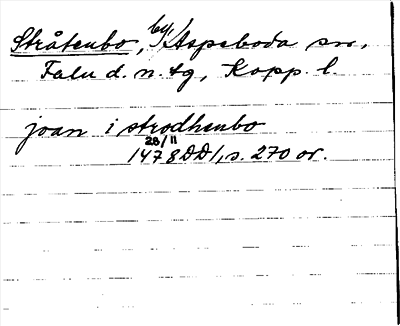 Stråtenbo, by, Aspeboda sn,
Falu d. n. tg, Kopp. l.
joan i strodhenbo
28/11
1478 DD1, s. 270 or.